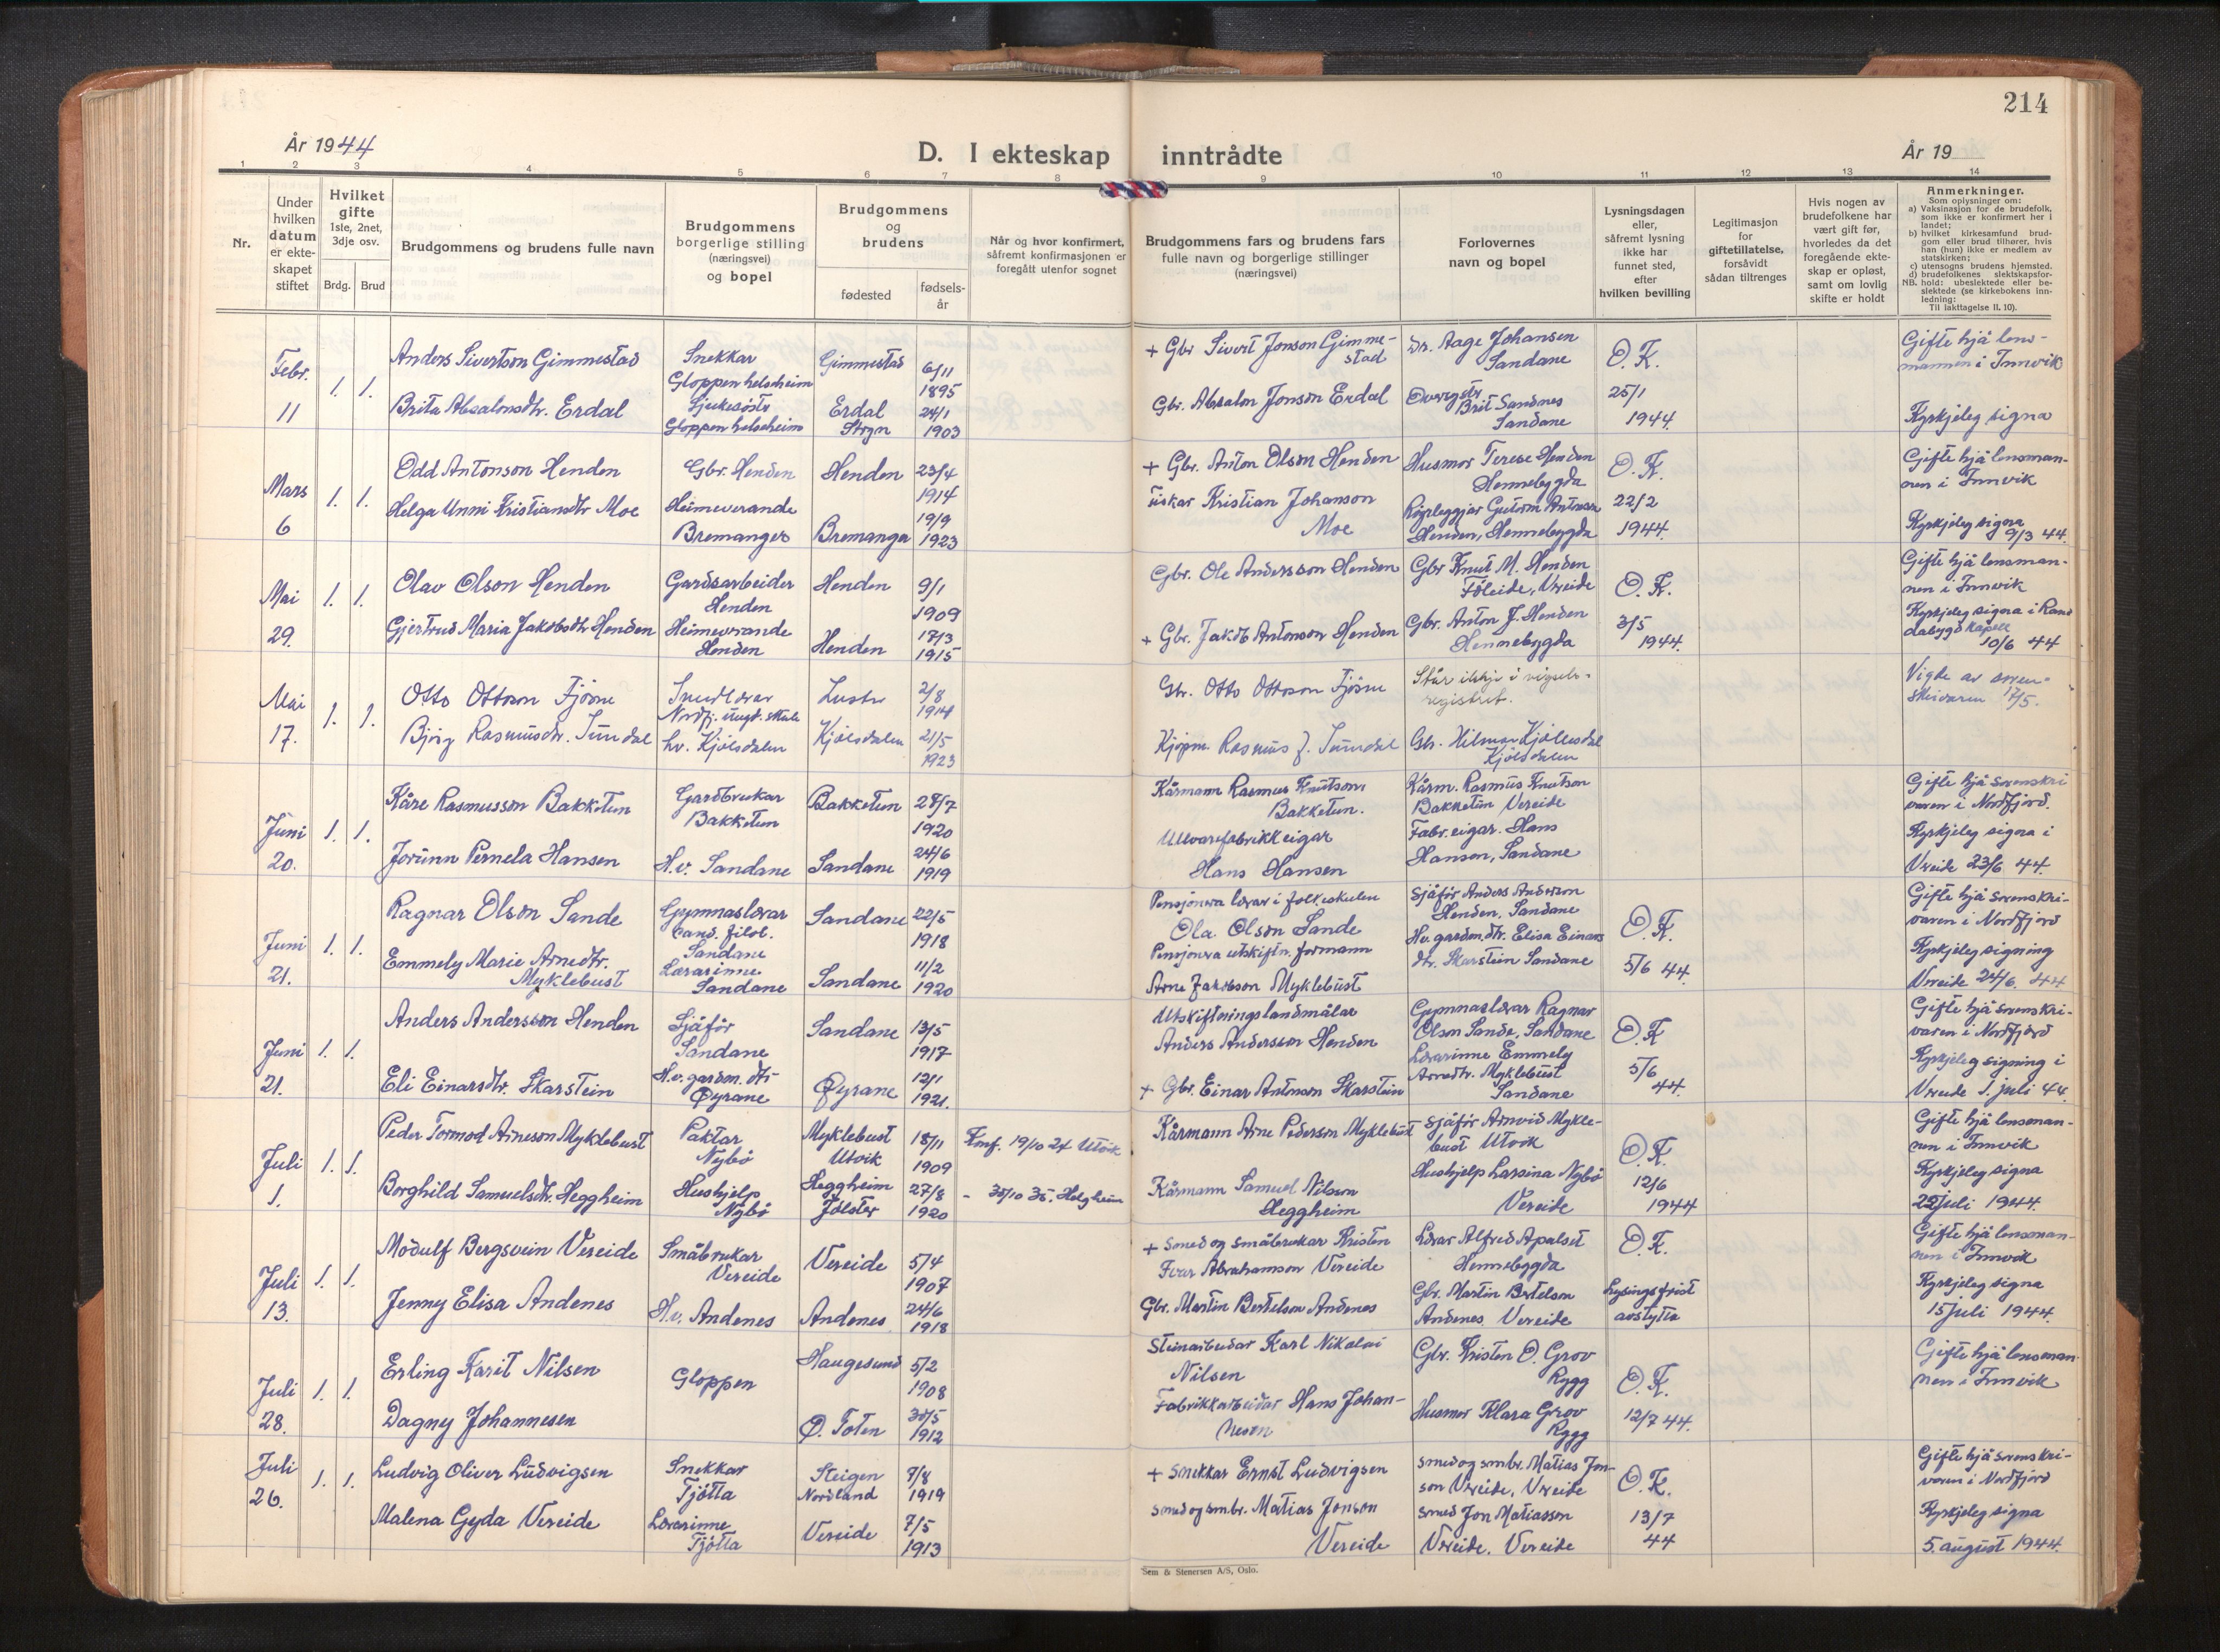 214
År 1944
D. I ekteskap inntrådte
År 19
1 2 3 4 5 6 7 8 9 10 11 12 13 14
Nr.
Under
hvilken
datum
er ekte-
skapet
stiftet
Hvilket
gifte
1ste, 2net,
3dje osv.
Brdg. Brud
Brudgommens og brudens fulle navn
Brudgommens
borgerlige stilling
(næringsvei)
og bopel
Brudgommens
og
brudens
fødested
fødsels-
år
Når og hvor konfirmert,
såfremt konfirmasjonen er
foregått utenfor sognet
Brudgommens fars og brudens fars
fulle navn og borgerlige stillinger
(næringsvei)
Forlovernes
navn og bopel
Lysningsdagen
eller,
såfremt lysning
ikke har
funnet sted,
efter
hvilken bevilling
Legitimasjon
for
giftetillatelse,
forsåvidt
sådan tiltrenges
Hvis nogen av
brudefolkene har
vært gift før,
hvorledes da det
foregående ekte-
skap er opløst,
samt om lovlig
skifte er holdt
Anmerkninger.
Som oplysninger om:
a) Vaksinasjon for de brudefolk,
som ikke er konfirmert her i
landet;
b) hvilket kirkesamfund brud-
gom eller brud tilhører, hvis
han (hun) ikke er medlem av
statskirken;
c) utensogns brudens hjemsted.
d) brudefolkenes slektskapsfor-
NB. hold: ubeslektede eller be-
slektede (se kirkebokens inn-
ledning:
Til iakttagelse II. 10).
Febr.
11
1. 1.
Anders Sivertson Gimmestad
Snekkar
Gloppen helseheim
Gimmestad
6/11
1895
+ Gbr Sivert Jonson Gimme-
stad
Dr. Aage Johansen
Sandane
O.K.
Gifte hjå lens-
mannen i Innvik
Brita Absalonsdtr. Erdal
Sjukesøster
Gloppen helseheim
Erdal
Stryn
24/1
1903
Gbr. Absalon Jonson Erdal
Oversystr
Brit Sandnes
Sandane
25/1
1944.
Kyrkjeleg signa
Mars
6
1. 1.
Odd Antonson Henden
Gbr. Henden
Henden
23/4
1914
+ Gbr. Anton Olson Henden
Husmor Terese Henden
Hennebygda
O.K.
Gifte hjå lensman-
nen i Innvik
Helga Unni Kristiansdtr Moe
Heimeverande
Bremanger
Bremanger
19/9
1923
Fiskar Kristian Johanson
Moe
Røyrleggjar Guttorm Antonson
Henden, Hennebygda
22/2
1944.
Kyrkjeleg signa
9/3 44.
Mai
29.
1. 1.
Olav Olson Henden
Gardsarbeider
Henden
Henden
9/1
1909
Gbr. Ole Andersson Henden
Gbr Knut M. Henden
Føleide, Vreide
O.K.
Gifte hjå lensman-
nen i Innvik
Gjertrud Maria Jakobsdtr Henden
Heimeverande
Henden
Henden
17/3
1915
+ Gbr. Jakob Antonson Henden
Gbr. Anton J. Henden
Hennebygda
3/5
1944.
Kyrkjeleg signa i Ran
dabygd kapell
10/6 44
Mai
17.
1. 1.
Otto Ottoson Fjøsne
Snedlærar
Nordfj. ungd. skule
Luster
2/8
1914
Gbr. Otto Ottoson Fjøsne
Står ikkje i vigsels-
registret.
Vigde av soren-
skrivaren 17/5.
Bjørg Rasmusdtr. Sundal
hv. Kjølsdalen
Kjølsdalen
21/5
1923
Kjøpm. Rasmus J. Sundal
Gbr. Hilmar Kjøllesdal
Kjølsdalen
Juni
20.
1. 1.
Kåre Rasmusson Bakketun
Gardbrukar
Bakketun
Bakketun
28/7
1920
Kårmann Rasmus Knutson
Bakketun.
Kårm. Rasmus Knutson
Bakketun Vereide
Gifte hjå sorenskri
varen i Nordfjord.
Jorunn Pernela Hansen
H.v. Sandane
Sandane
24/6
1919
Ullvarefabrikkeigar
Hans Hansen
Fabr. eigar. Hans
Hanson, Sandane
Kyrkjeleg signa i
Vreide 23/6 44.
Juni
21.
1. 1.
Ragnar Olson Sande
Gymnaslærar
Cand. filol.
Sandane
Sandane
22/5
1918
Pensjonera lærar i folkeskulen
Ola Olson Sande
Sjåfør Anders Anderson
Henden, Sandane
O.K.
Gifte hjå sorenskri-
varen i Nordfjord
Emmely Marie Arnedtr.
Myklebust
Lærarinne
Sandane
Sandane
11/2
1920
Pensjonera utskiftn. formann
Arne Jakobson Myklebust
Hv. gardm. dtr. Elisa Einars
dtr. Skarstein Sandane
5/6 44.
Kyrkjeleg signing
Vreide 24/6. 44
Juni
21.
1. 1.
Anders Andersson Henden
Sjåfør
Sandane
Sandane
13/5
1917
Utskiftningslandmålar
Anders Andersson Henden
Gymnaslærar Ragnar
Olson Sande, Sandane
O.K
Gifte hjå sorenskri-
varen i Nordfjord
Eli Einarsdtr. Skarstein
H.v. gardm. dtr
Øyrane
Øyrane
12/1
1921.
+ Gbr. Einar Antonson Skarstein
Lærarinne Emmely
Arnedtr. Myklebust
Sandane
5/6
44.
Kyrkjeleg signing i
Vreide 1. juli 44.
Juli
1.
1. 1.
Peder Tormod Arneson Myklebust
Paktar
Nybø
Myklebust
Utvik
18/11
1909
Konf. 19/10 24 Utvik
Kårmann Arne Pederson Myklebust
Sjåfør Arnvid Mykle-
bust Utvik
O.K.
Gifte hjå lensman-
nen i Innvik
Borghild Samuelsdtr. Heggheim
Hushjelp
Nybø
Heggheim
Jølster
27/8
1920
- 30/10 35. Helgheim
Kårmann Samuel Nilson
Heggheim
Hushjelp Larsina Nybø
Vereide
12/6
1944
Kyrkjeleg signa
22 juli 1944.
Juli
13.
1. 1.
Modulf Bergsvein Vereide
Småbrukar
Vereide
Vereide
5/4
1907
+ Smed og småbrukar Kristen
Ivar Abrahamson Vereide
Lærar Alfred Apalset
Hennebygda
O.K.
Gifte hjå lensman-
nen i Innvik
Jenny Elisa Andenes
H.v. Andenes
Andenes
24/6
1918
Gbr. Martin Bertelson Andenes
Gbr. Martin Bertelson
Andenes Vereide
Lysingsfrist
avstytta
Kyrkjeleg signa
15 juli 1944.
Juli
28.
1. 1.
Erling Karit Nilsen
Gloppen
Haugesund
5/2
1908
Steinarbeidar Karl Nikolai
Nilsen
Gbr. Kristen O. Grov
Rygg
O.K.
Gifte hjå lensman-
nen i Innvik
Dagny Johannesen
Ø. Toten
30/5
1912
Fabrikkarbeidar Hans Johan-
nesen
Husmor Klara Grov
Rygg
12/7 44.
Juli
26.
1. 1.
Ludvig Oliver Ludvigsen
Snekkar
Tjøtta
Steigen
Nordland
7/8
1919
+ Snekkar Ernst Ludvigsen
Smed og smbr. Matias Jon-
son Vreide, Vreide
O.K.
Gifte hjå sorenskri-
varen i Nordfjord
Malena Gyda Vereide
Lærarinne
Tjøtta
Vereide
7/5
1913
Smed og smbr. Matias Jonson
Vereide
Smed Jon Matiasson
Vreide. Vereide
13/7
44
Kyrkjeleg signa
5. august 1944.
Sem & Stenersen A/S, Oslo.